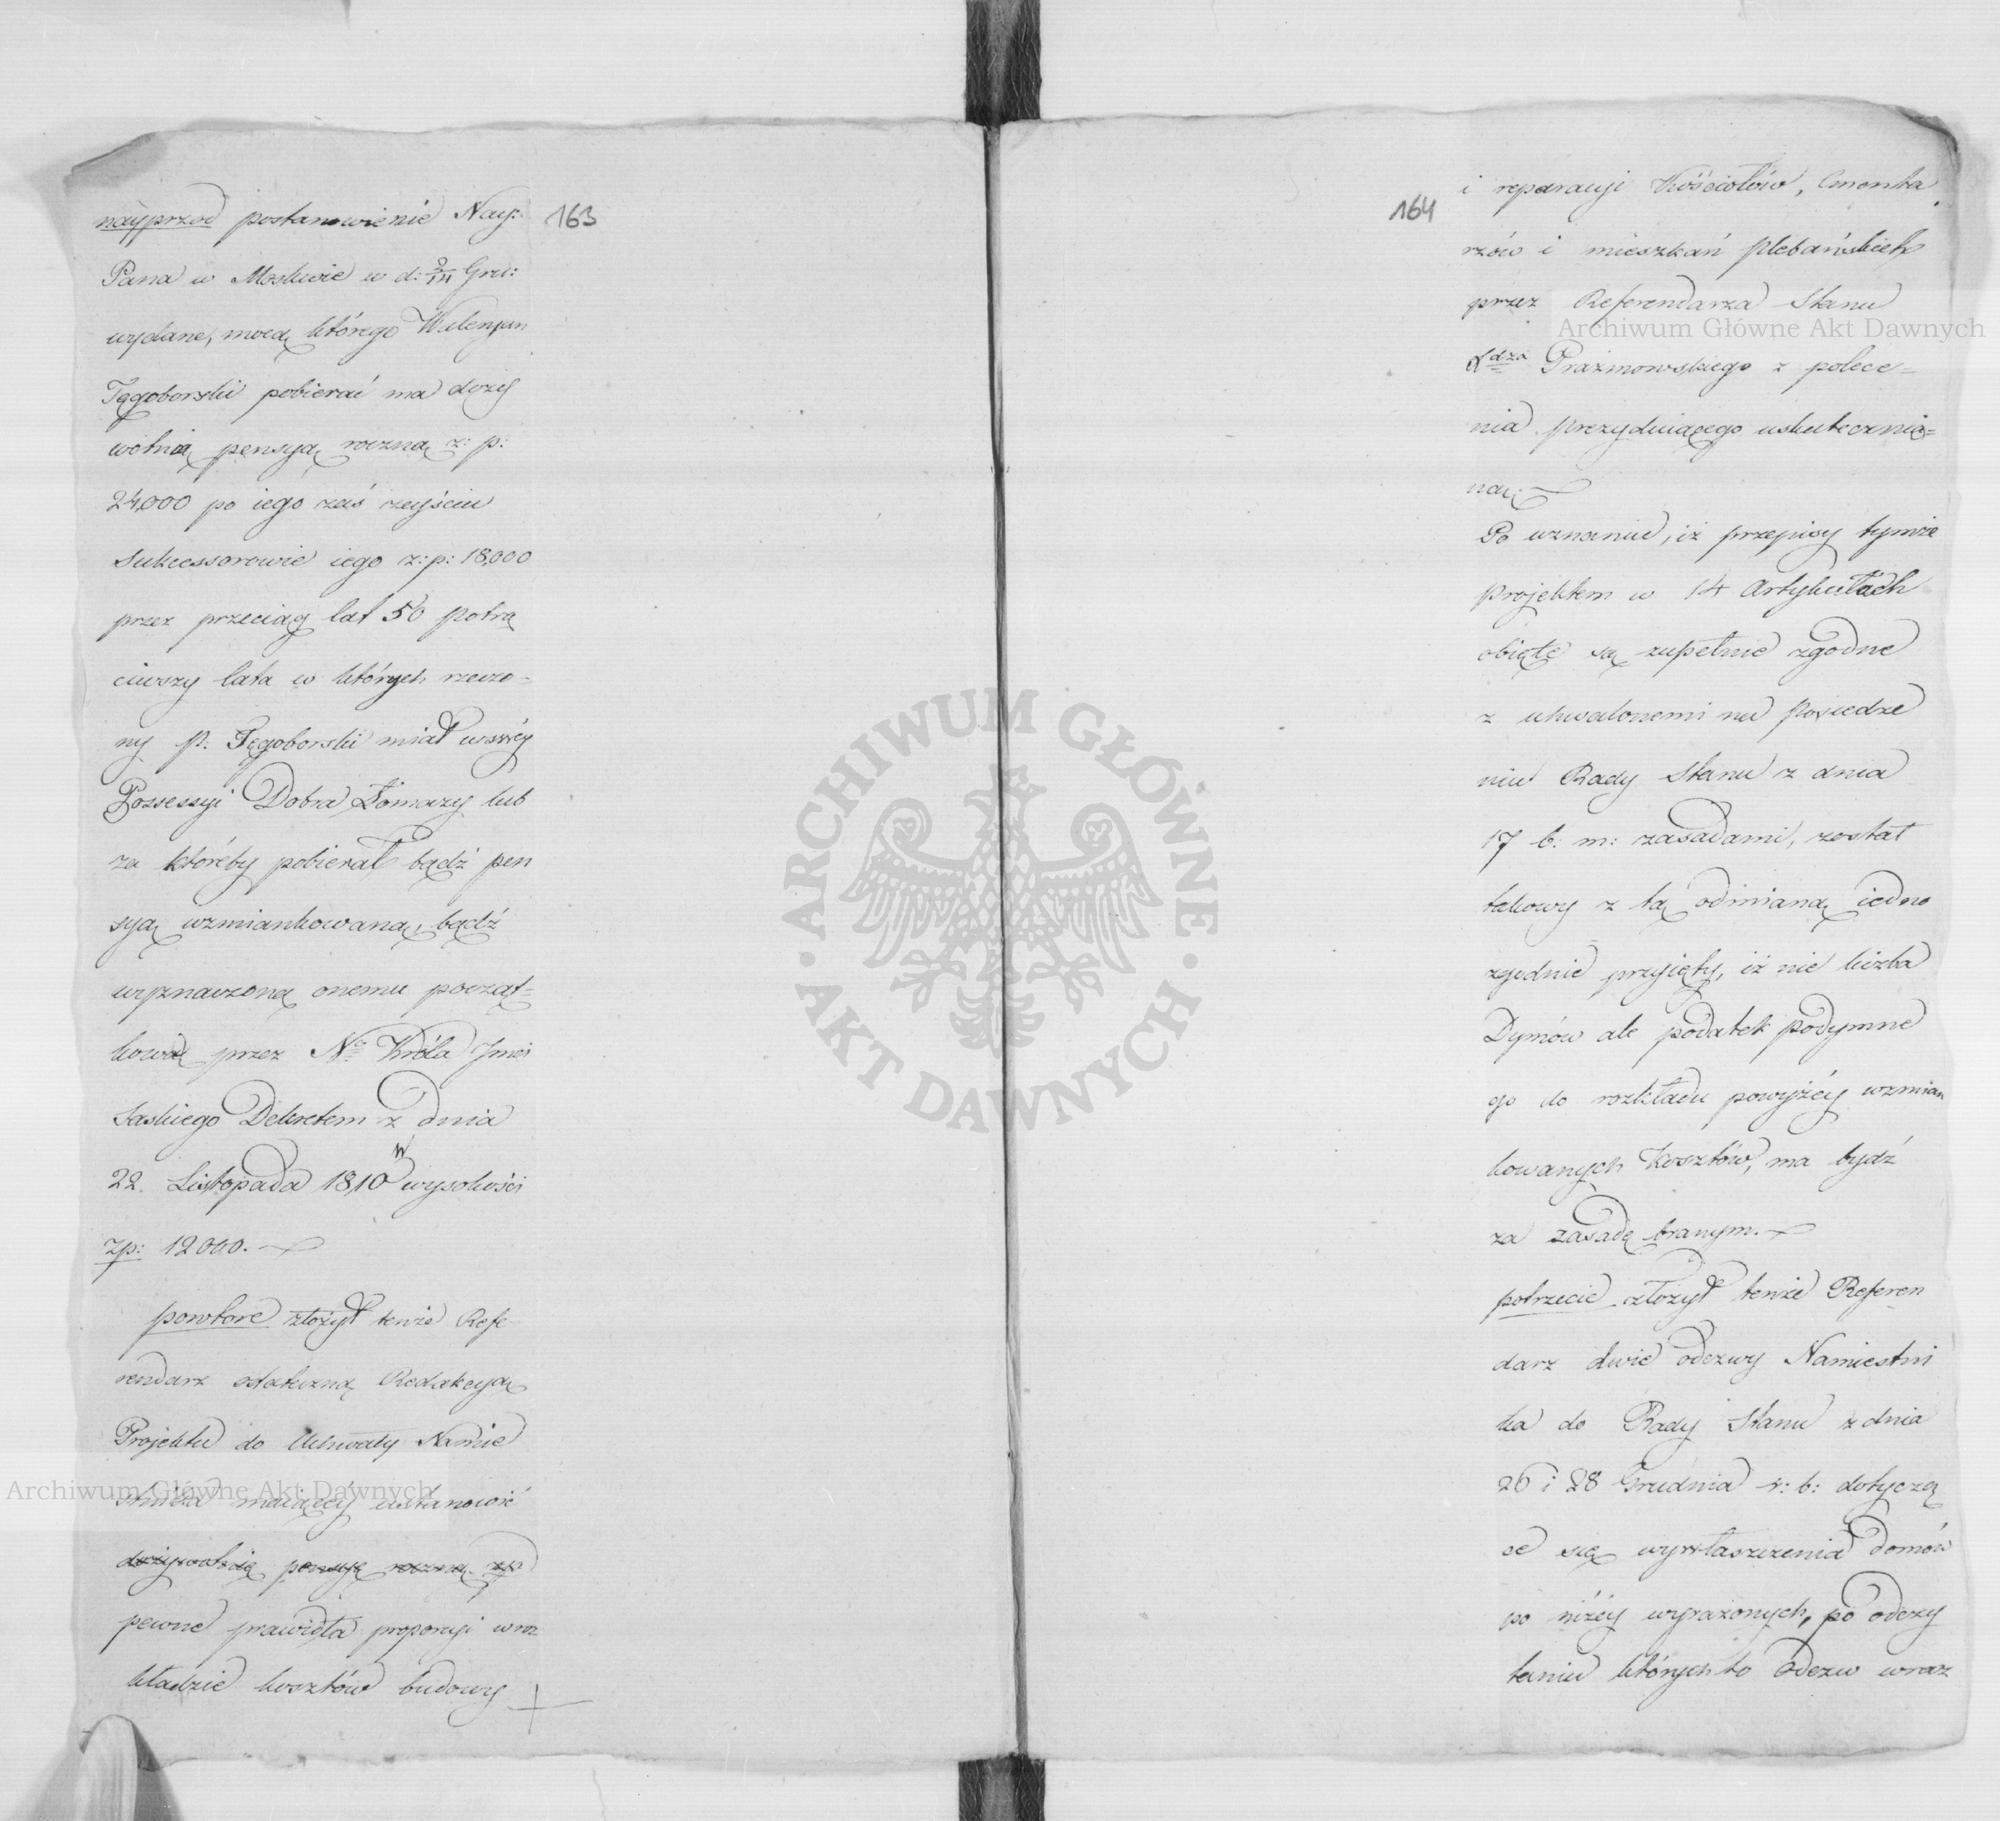 163
nayprzod postanowienie Nay:
Pana w Moskwie w d: 2/14 Gru:
wydane, mocą którego Walenjan
Tęgoborski pobierać ma doży
wotnią pensyą roczną z: p:
24,000 po iego zaś zeyściu
Sukcessorowie iego z: p: 18,000
przez przeciąg lat 50 potrą
ciwszy lata w których rzeczo-
ny P. Tęgoborski miał w swéy
Possessyi Dobra Łomazy lub
za któréby pobierał bądź pen
syą wzmiankowaną, bądź
wyznaczoną onemu począt=
kową przez No Króla Jmci
Saskiego Dekretem z dnia
22. Listopada 1810 w wysokości
zp: 12000.
powtore złożył tenże Refe
rendarz ostateczną Redakcyą
Projektu do Uchwały Namie
stnika maiącéy ustanowić
dożywotnią pensyę roczną zp
pewne prawidła proporcyi w roz
kładzie kosztów budowy
164
i reparacyi Kościołów, Cmenta
rzów i mieszkań Plebańskich
przez Referendarza Stanu
Xdza Prażmowskiego z polece=
nia prezyduiącego uskutecznio=
ną.
Po uznaniu, iż przepisy tymże
Projektem w 14 Artykułach
obięte są zupełnie zgodne
z uchwalonemi na Posiedze
niu Rady Stanu z dnia
17 b: m: zasadami, został
takowy z tą odmianą iedno
zgodnie przyięty, iż nie liczba
Dymów ale podatek podymne
go do rozkładu powyżéy wzmian
kowanych Kosztów, ma bydź
za zasadę branym.
potrzecie złożył tenże Referen
darz dwie odezwy Namiestni
ka do Rady Stanu z dnia
26 i 28 Grudnia r: b: dotyczą
ce się wywłaszczenia domów
po niżéy wyrażonych, po odczy
taniu których to odezw wraz
Archiwum Główne Akt Dawnych
Archiwum Główne Akt Dawnych
· ARCHIWUM GŁÓWNE · AKT DAWNYCH